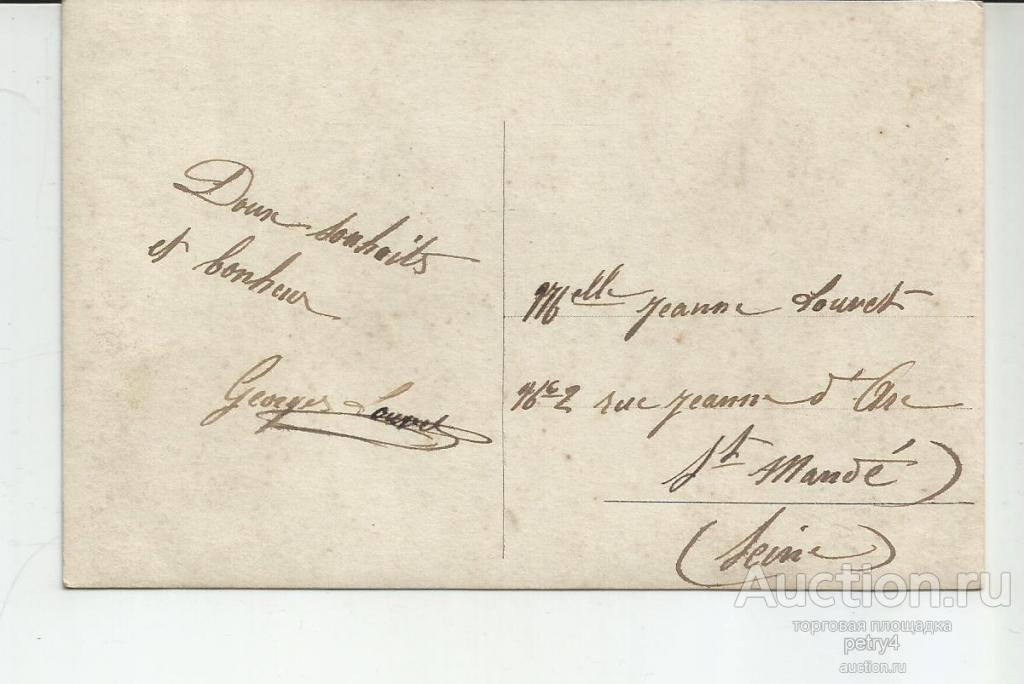 Doux souhaits
et bonheur
Georges Louvet
Melle Jeanne Louvet
No 2 rue Jeanne d'Arc
St Mandé)
(Seine)
Auction.ru
торговая площадка
petry4
auction.ru